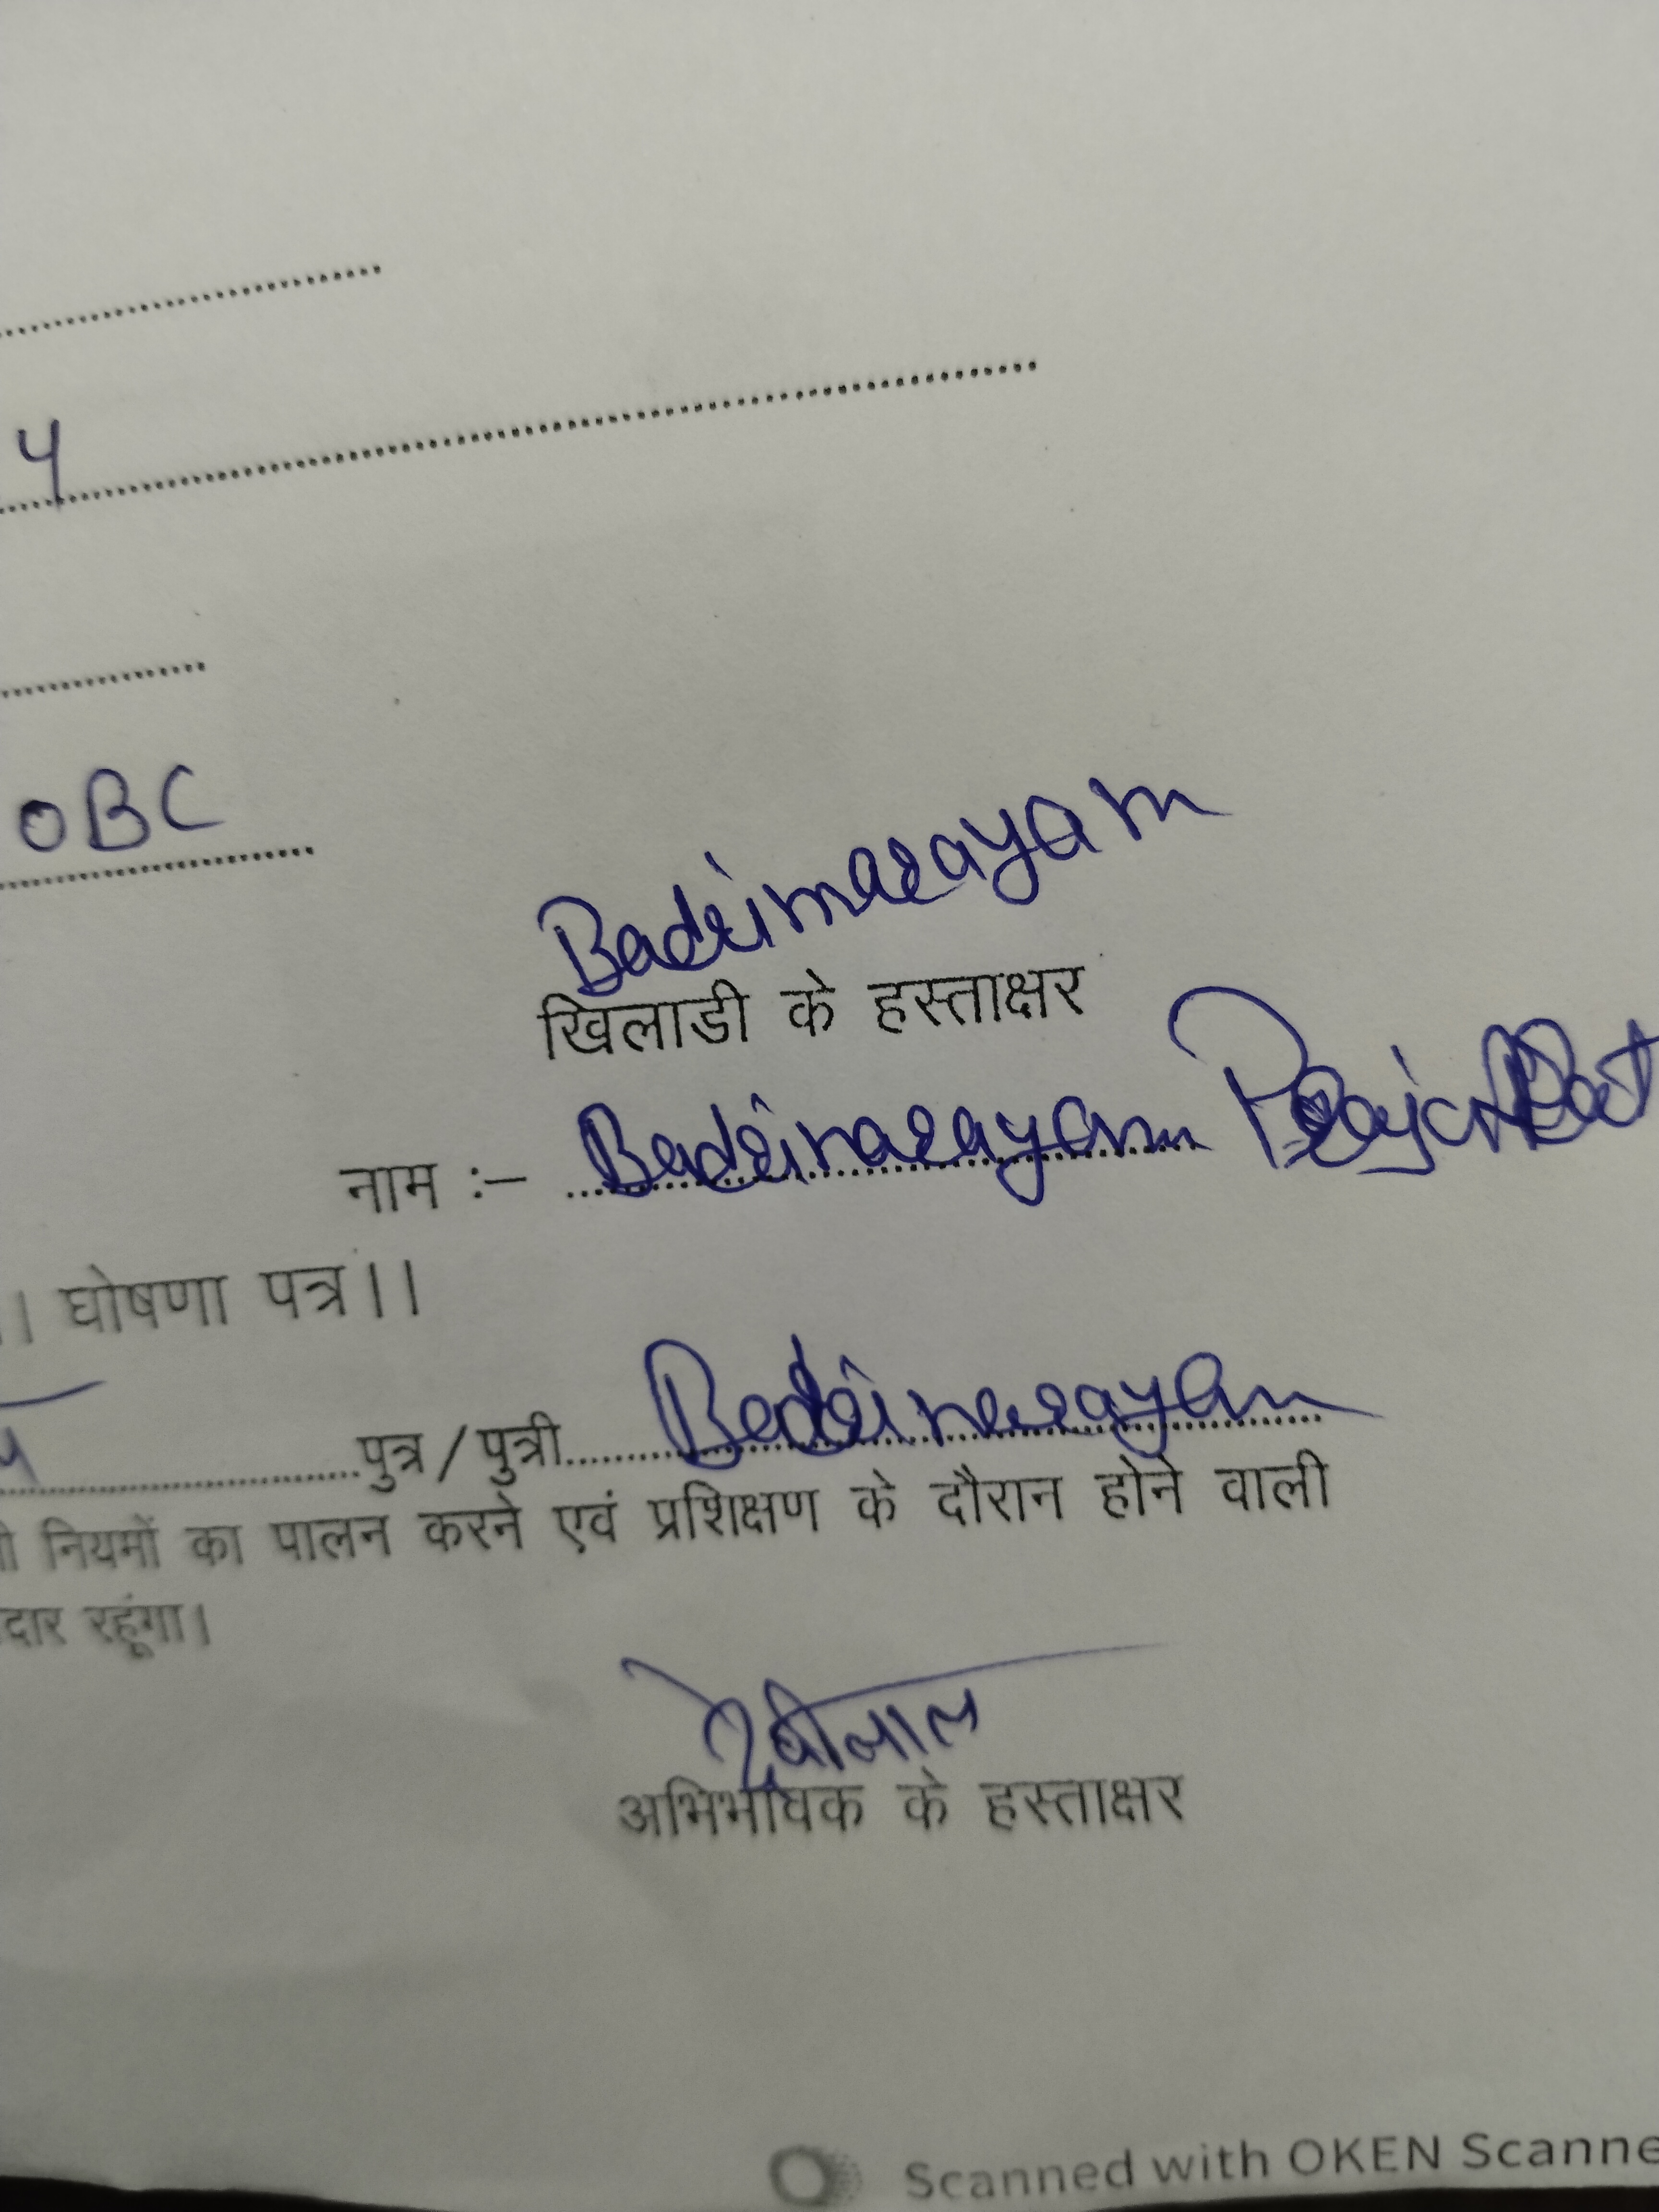 4
OBC
Badrinarayan
खिलाडी के हस्ताक्षर
नाम :- Badrinarayan
।। घोषणा पत्र।।
पुत्र / पुत्री Badrinarayan
नियमों का पालन करने एवं प्रशिक्षण के दौरान होने वाली
रहूंगा।
देवीलाल
अभिभावक के हस्ताक्षर
Scanned with OKEN Scanne